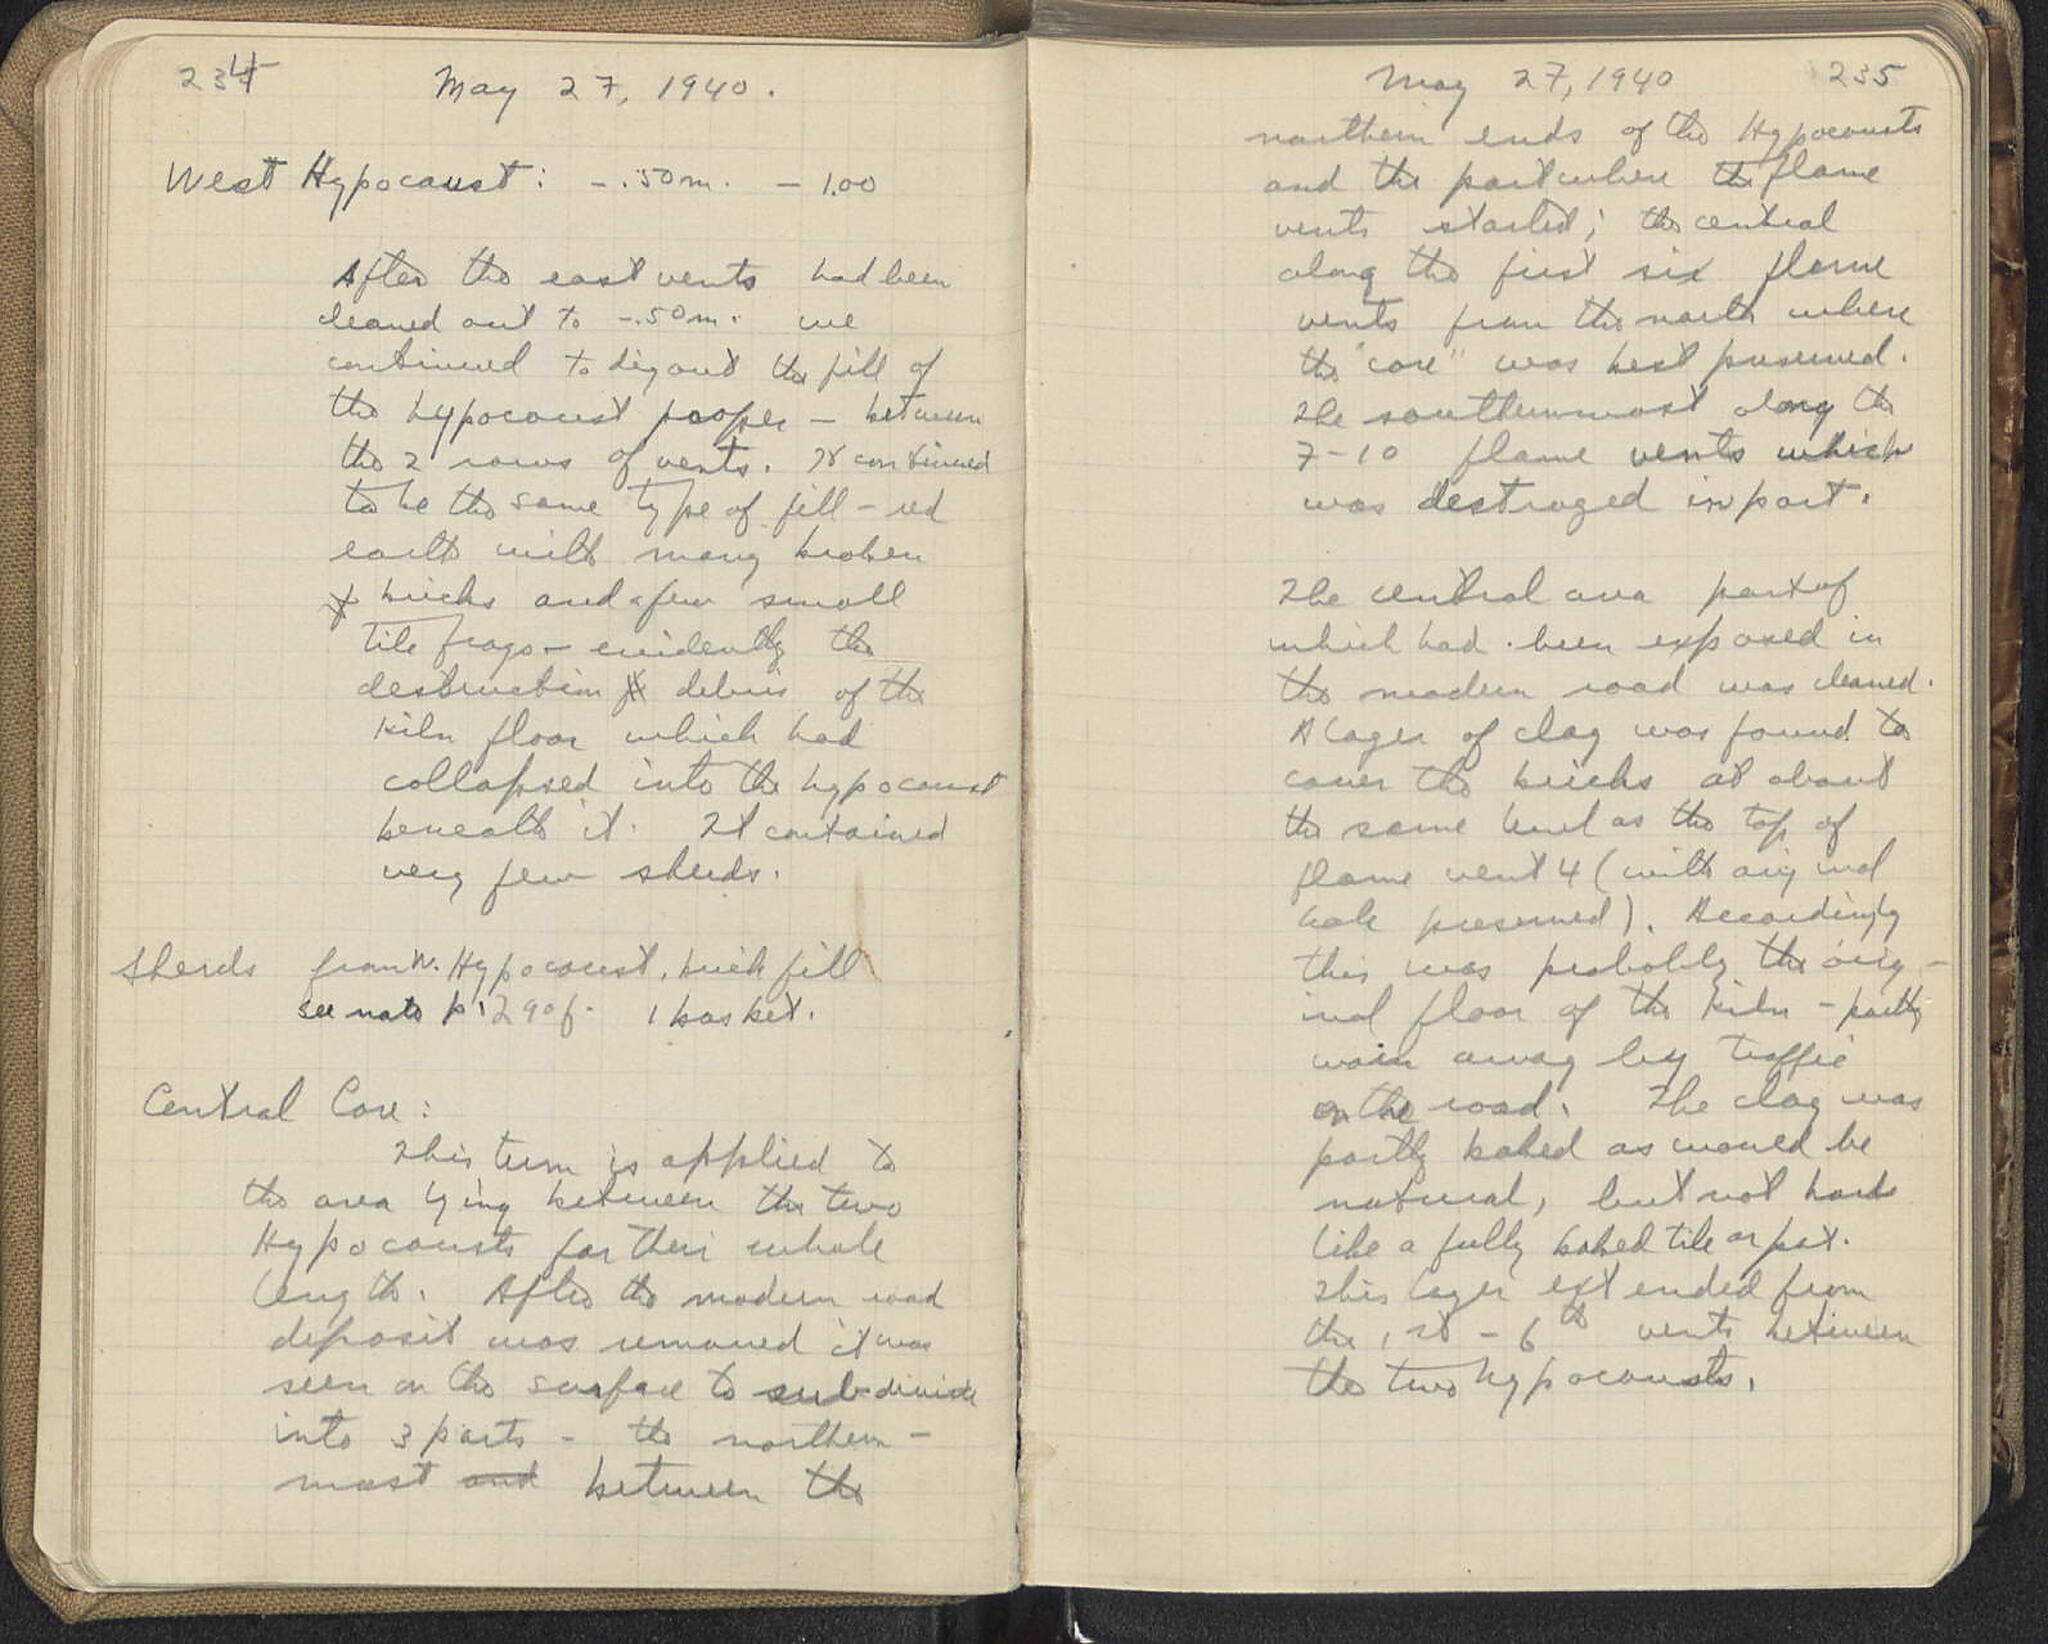 234
May 27, 1940.
West Hypocaust: -.50m. - 1.00
After the east vents had been
cleaned out to -.50m. we
continued to dig out the fill of
the hypocaust proper - between
the 2 rows of vents. It continued
to be the same type of fill - red
earth with many broken
bricks and a few small
tile frags - evidently the
destruction debris of the
kiln floor which had
collapsed into the hypocaust
beneath it. It contained
very few sherds.
Sherds from W. Hypocaust, brick fill
see note p. 290f. 1 basket.
Central Core:
This term is applied to
the area lying between the two
Hypocausts for their whole
length. After the modern road
deposit was removed it was
seen on the surface to sub-divide
into 3 parts - the northern-
most and between the
May 27, 1940
235
northern ends of the Hypocausts
and the part where the flame
vents started; the central
along the first six flame
vents from the north where
the "core" was best preserved.
The southernmost along the
7-10 flame vents which
was destroyed in part.
The central area part of
which had been exposed in
the modern road was cleaned.
A layer of clay was found to
cover the bricks at about
the same level as the top of
flame vent 4 (with original
hole preserved). Accordingly
this was probably the orig-
inal floor of the kiln - partly
worn away by traffic
on the road. The clay was
partly baked as would be
natural, but not hard
like a fully baked tile or pot.
This layer extended from
the 1st - 6th vents between
the two hypocausts.